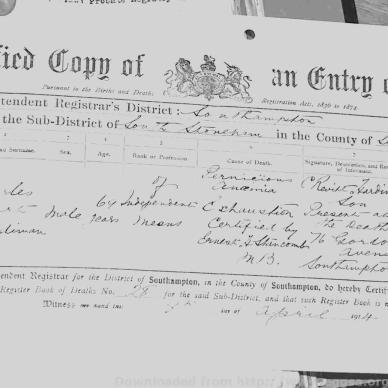 fied Copy of an Entry o
Pursuant to the Births and Deaths Registration Acts, 1836 to 1874.
tendent Registrar's District :— Southampton
the Sub-District of South Stoneham in the County of
Surname. Sex. Age. Rank or Profession. Cause of Death. Signature, Description, and Re of Informant.
Male 64 years of Independent means
Pernicious Anæmia
Exhaustion
Certified by
Ernest J. Shincomb
M.B.
Son
Present at
the Death
76 Gordon
Avenue
Southampton
endent Registrar for the District of Southampton, in the County of Southampton, do hereby Certif
Register Book of Deaths No. 28 for the said Sub-District, and that such Register Book is n
Witness my hand this day of April 1914
Downloaded from